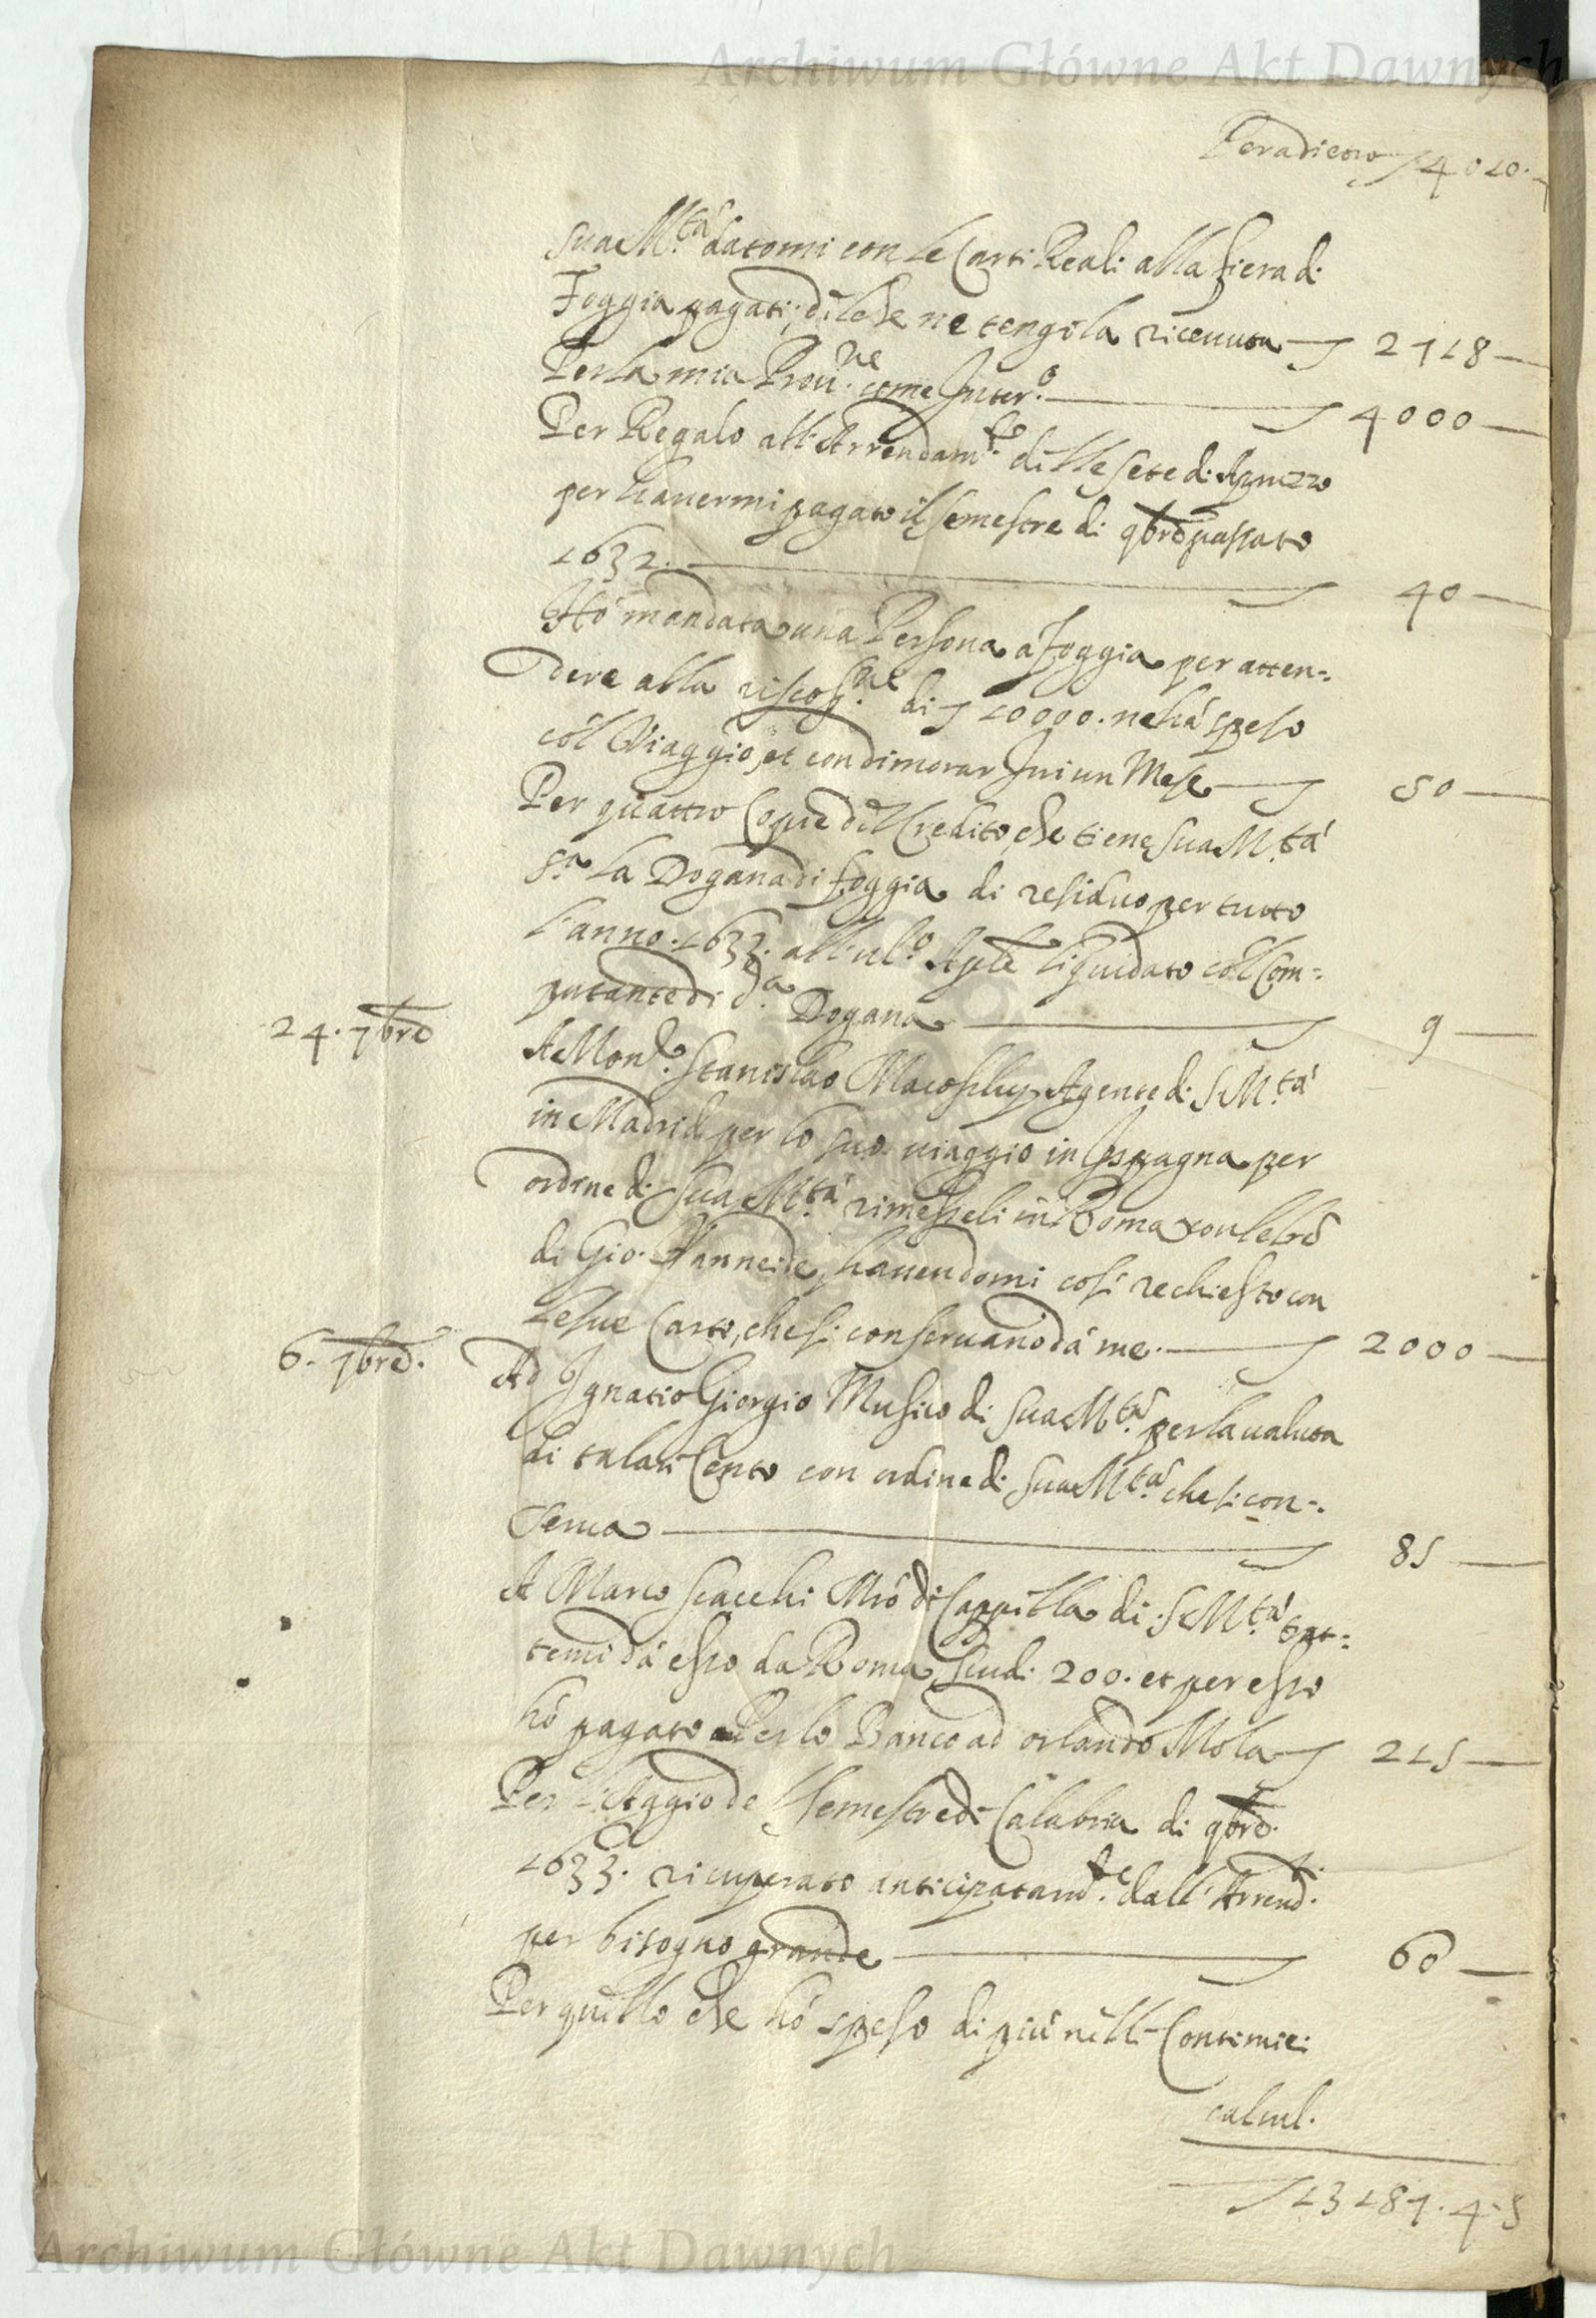 Archiwum Główne Akt Dawnych
Per a dietro 4010.
Sua M.tà datomi con le Carti Reali alla fiera di
Foggia pagati; dilche ne tengo la riceuuta 2718
Per la mia Prou.ne come Inter.o 4000
Per Regalo all'Arrendam.to dille sete di Apruzzo
per hauermi pagato il semestre di 9bre passato
1632. 40
Hò mandata una Persona à Foggia per atten=
dere alla riscoss.ne di 10000. ne hà speso
col Viaggio, et con dimorar Iui un Mese 50
Per quattro Copie dil Credito, che tiene Sua M.tà
s.a la Dogana di Foggia di residuo per tutto
l'anno. 1633. all'ul.o Aple liquidato col Com=
putante di d.a Dogana 9
24. 7bre
A Mon.r Stanislao Macoschy Agente di S. M.tà
in Madrid per lo suo uiaggio in Ispagna per
ordine di Sua M.tà rimesseli in Roma con letre
di Gio. Vanneide, hauendomi così rechiesto con
le sue Carte, che si conseruano dà me. 2000
6. 7bre.
Ad Ignatio Giorgio Musico di Sua M.tà per la ualuta
di talari Cento con ordine di Sua M.tà che si con=
serua 85
A Marco Scacchi Mro di Cappilla di S. M.tà trat=
temi dà esso da Roma Scudi 200. et per esso
hò pagato Per lo Banco ad Orlando Mola 215
Per l'Aggio de Semestre di Calabria di 9bre.
1633. ricuperato anticipatam.te dall'Arrend.ti
per bisogno grande 60
Per quillo che hò speso di più nilli Conti miei
calcul.
13187. 4. 5
Archiwum Główne Akt Dawnych